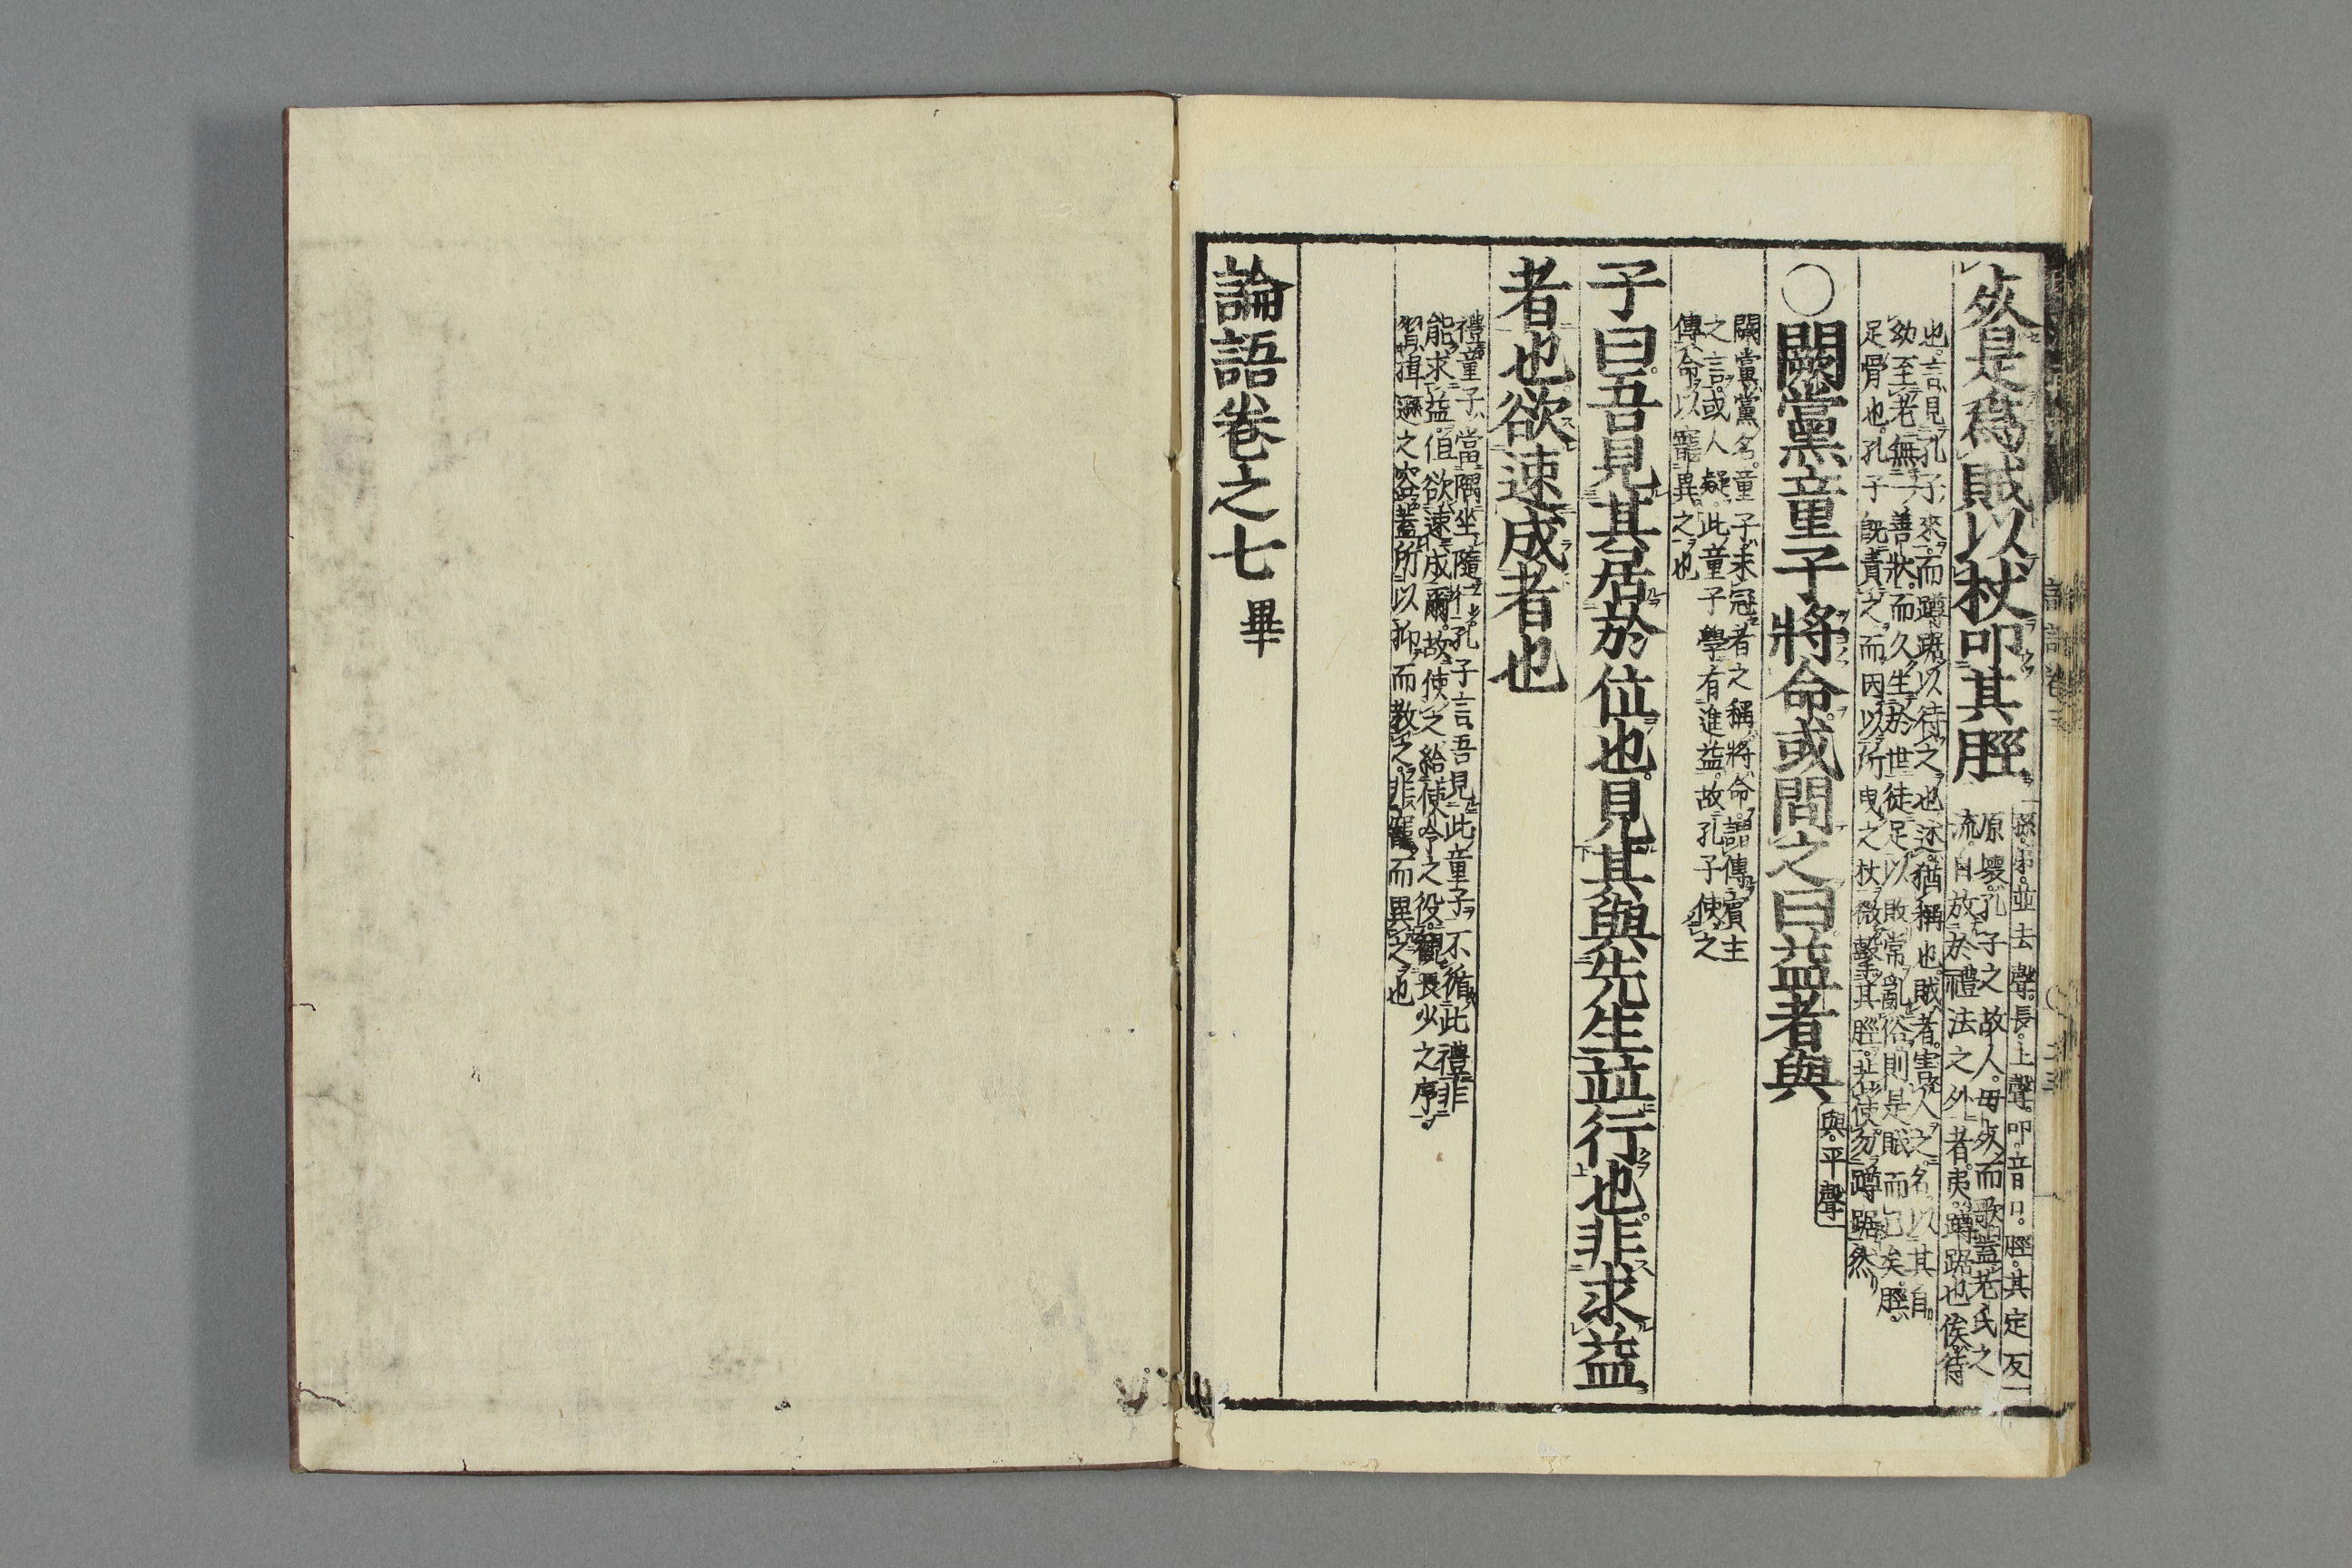 死是為賊以杖叩其脛
孫。弟。並去聲。長。上聲。叩。音口。脛。其定反
原壤。孔子之故人。母死而歌。蓋老氏之
流。自放於禮法之外者。夷。蹲踞也。俟。待
也。言見孔子來。而蹲踞以待之也。述。猶稱也。賊者。害人之名。以其自。
幼至老。無一善狀。而久生於世。徒足以敗常亂俗。則是賊而已矣。脛。
足骨也。孔子既責之。而因以所曳之杖。微擊其脛。若使勿蹲踞然。
○闕黨童子將命或問之曰益者與
與。平聲
闕黨。黨名。童子。未冠者之稱。將命。謂傳賓主
之言。或人疑。此童子學有進益。故孔子使之
傳命。以寵異之也
子曰吾見其居於位也。見其與先生並行也。非求益
者也。欲速成者也
禮。童子當隅坐隨行。孔子言吾見此童子。不循此禮。非
能求益。但欲速成爾。故使之給使令之役。觀長少之序。
習揖遜之容。蓋所以抑而教之。非寵而異之也
論語卷之七畢